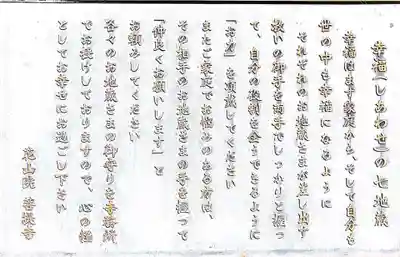 幸福(しあわせ)の七地蔵
幸福はまず家庭から、そして自分も
世の中も幸福になるように
それぞれのお地蔵さまが差し出す
救いの御手を両手でしっかりと握っ
て、自分の役割を全うできるように
「お力」を頂戴してください
またご家庭でお悩みのある方は、
その相手のお地蔵さまの手を握って
「仲良くお願いします」と
お願みしてください
各々のお地蔵さまの御守りも手書紙
でお授けしておりますので、心の鏡
としてお幸せにお過ごし下さい
花山院 菩提寺